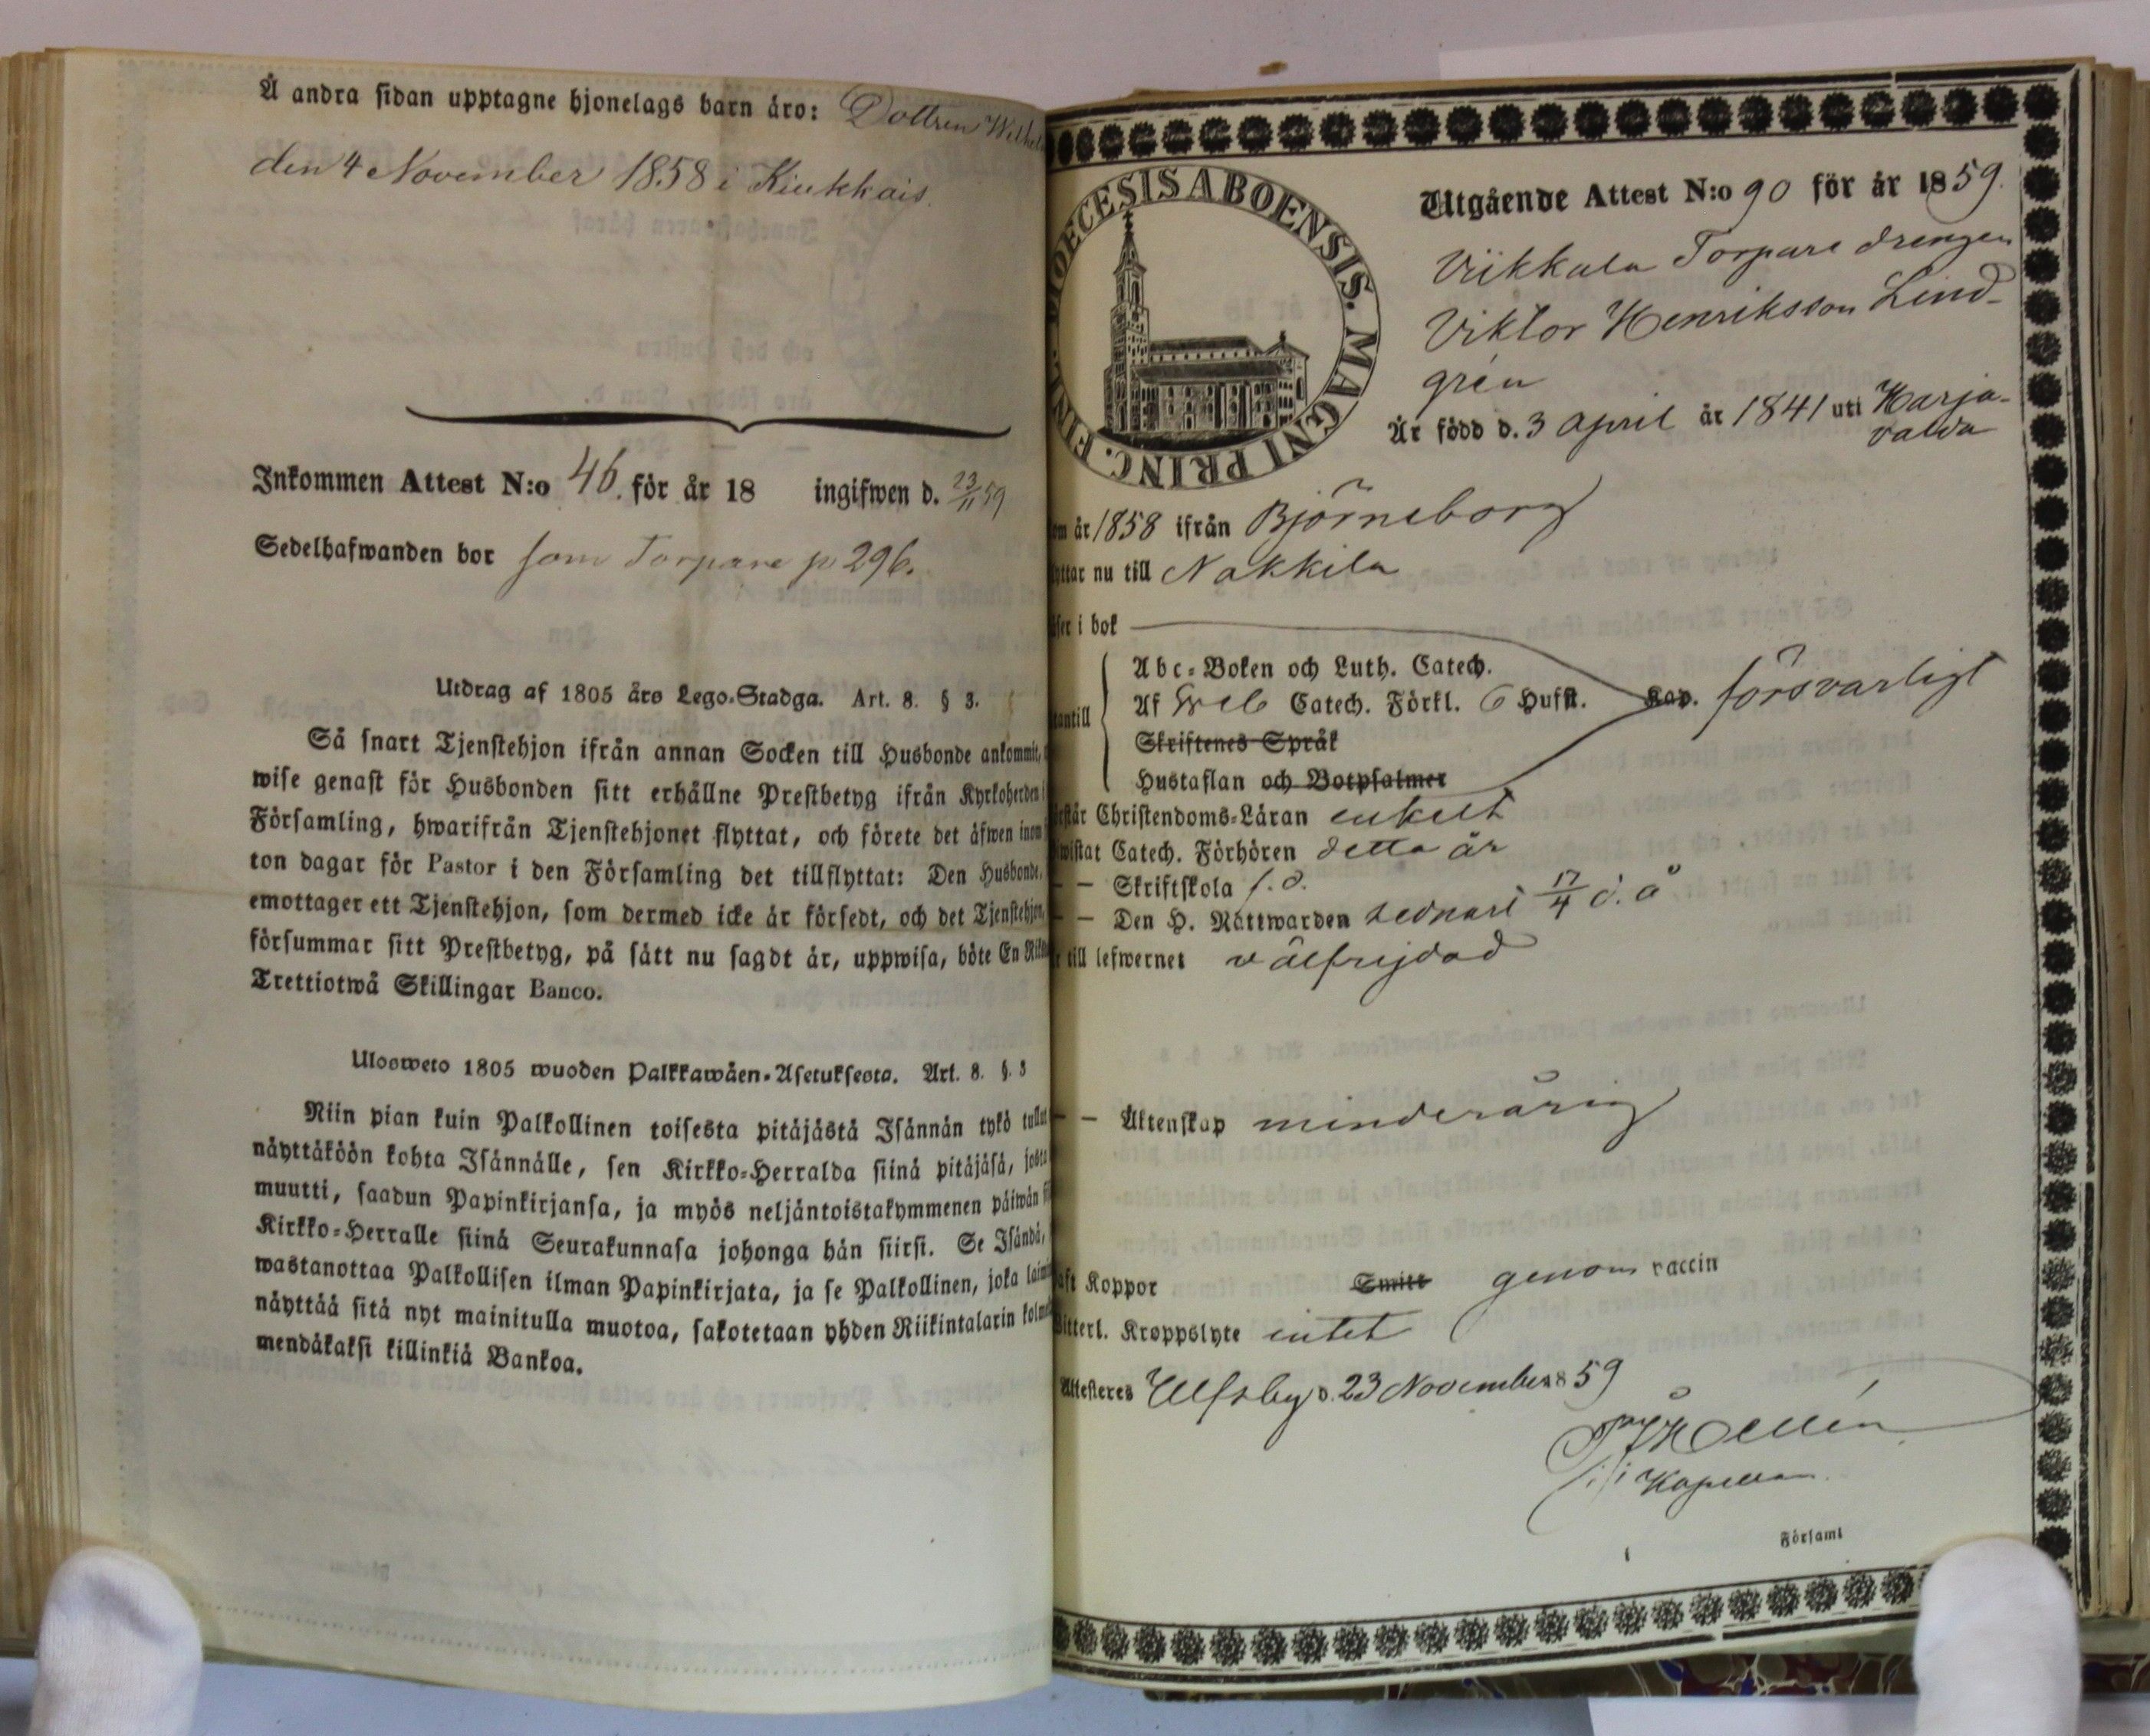 Å andra sidan upptagne hjonelags barn äro: Dottren
den 4 November 1858 i Kiukkais.
Inkommen Attest N:o 46. för år 18 ingifwen d. 23/11 59
Sedelhafwanden bor som Torpare p 296.
Utdrag af 1805 års Lego-Stadga. Art. 8. § 3.
Så snart Tjenstehjon ifrån annan Socken till Husbonde ankommit,
wise genast för Husbonden sitt erhållne Prestbetyg ifrån Kyrkoherden i
Församling, hwarifrån Tjenstehjonet flyttat, och förete det äfwen inom
ton dagar för Pastor i den Församling det tillflyttat: Den Husbonde,
emottager ett Tjenstehjon, som dermed icke är försedt, och det Tjenstehjon,
försummar sitt Prestbetyg, på sätt nu sagdt är, uppwisa, böte En
Trettiotwå Skillingar Banco.
Ulosweto 1805 wuoden Palkkawäen-Asetuksesta. Art. 8. §. 3
Niin pian kuin Palkollinen toisesta pitäjästä Isännän tykö tullut
näyttäköön kohta Isännälle, sen Kirkko-Herralda siinä pitäjäsä, josta
muutti, saadun Papinkirjansa, ja myös neljäntoistakymmenen päiwän
Kirkko-Herralle siinä Seurakunnasa johonga hän siirsi. Se Isändä,
wastanottaa Palkollisen ilman Papinkirjata, ja se Palkollinen, joka
näyttää sitä nyt mainitulla muotoa, sakotetaan yhden Riikintalarin
mendäkaksi killinkiä Bankoa.
DIOECESIS ABOENSIS. MAGNI PRINC. FINL.
Utgående Attest N:o 90 för år 1859.
Viikkala Torpare drengen
Viktor Henriksson Lind-
grén
Är född d. 3 April år 1841 uti Harja-
valda
om år 1858 ifrån Björneborg
lyttar nu till Nakkila
äser i bok
tantill
Abc-Boken och Luth. Catech.
Af Catech. Förkl. 6 Hufst. Kap. försvarligt
Skriftenes Språk
Hustaflan och Botpsalmer
örstår Christendoms-Läran enkelt
wistat Catech. Förhören detta år
– – Skriftskola f. d.
– – Den H. Nattwarden sednast 17/4 d. å
r till lefwernet välfrejdad
– – Äktenskap minderårig
aft Koppor Smitt genom vaccin
itterl. Kroppslyte intet
Attesteres Ulfsby d. 23 November 1859
Kapellan.
i Församl